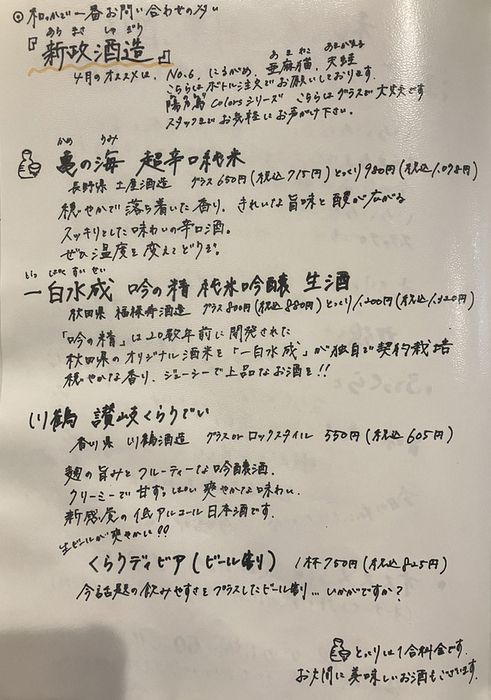 ⊙ 和かぶで一番お問い合わせの多い
あらまさ しゅぞう
『新政酒造』
あまねこ あまがえる
4月のオススメは、No.6、にるがめ、亜麻猫、天蛙
こちらはボトル注文でお願いしております。
陽乃鳥 Colorsシリーズ こちらはグラスで大丈夫です
スタッフまでお気軽にお声がけ下さい。
かめ うみ
亀の海 超辛口純米
長野県 土屋酒造 グラス650円(税込715円)とっくり980円(税込1,078円)
穏やかで落ち着いた香り。きれいな旨味と酸が広がる
スッキリとした味わいの辛口酒。
ぜひ温度を変えてどうぞ。
いっぱくすいせい
一白水成 吟の精 純米吟醸 生酒
秋田県 福禄寿酒造 グラス800円(税込880円)とっくり1,200円(税込1,320円)
「吟の精」は20数年前に開発された
秋田県のオリジナル酒米を「一白水成」が独自で契約栽培
穏やかな香り、ジューシーで上品なお酒を!!
川鶴 讃岐くらうでぃ
香川県 川鶴酒造 グラスorロックスタイル 550円(税込605円)
麹の旨みとフルーティーな吟醸酒。
クリーミーで甘ずっぱい爽やかな味わい。
新感覚の低アルコール日本酒です。
生ビールが爽やかい!!
くらうディビア(ビール割り) 1杯750円(税込825円)
今話題の飲みやすさをプラスしたビール割り…いかがですか?
とっくりは1合料金です。
お久間に美味しいお酒もございます。